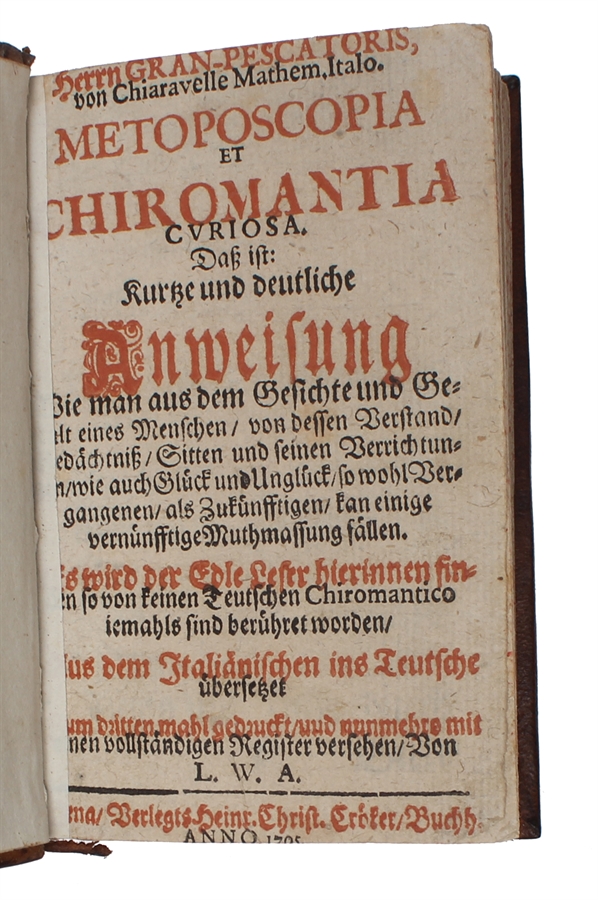 Herrn GRAN-PESCATORIS,
von Chiaravelle Mathem. Italo.
METOPOSCOPIA
ET
CHIROMANTIA
CVRIOSA.
Daß ist:
Kurtze und deutliche
Anweisung
Wie man aus dem Gesichte und Ge-
lt eines Menschen / von dessen Verstand /
edächtniß / Sitten und seinen Verrichtun-
n / wie auch Glück und Unglück / so wohl Ver-
gangenen / als Zukünfftigen / kan einige
vernünfftige Muthmassung fällen.
Es wird der Edle Leser hierinnen fin-
en so von keinen Teutschen Chiromantico
iemahls sind berühret worden /
Aus dem Italiänischen ins Teutsche
übersetzet
um dritten mahl gedruckt / uud nunmehro mit
nen vollständigen Register versehen / Von
L. W. A.
ena / Verlegts Heinr. Christ. Cröker / Buchh.
ANNO 1705